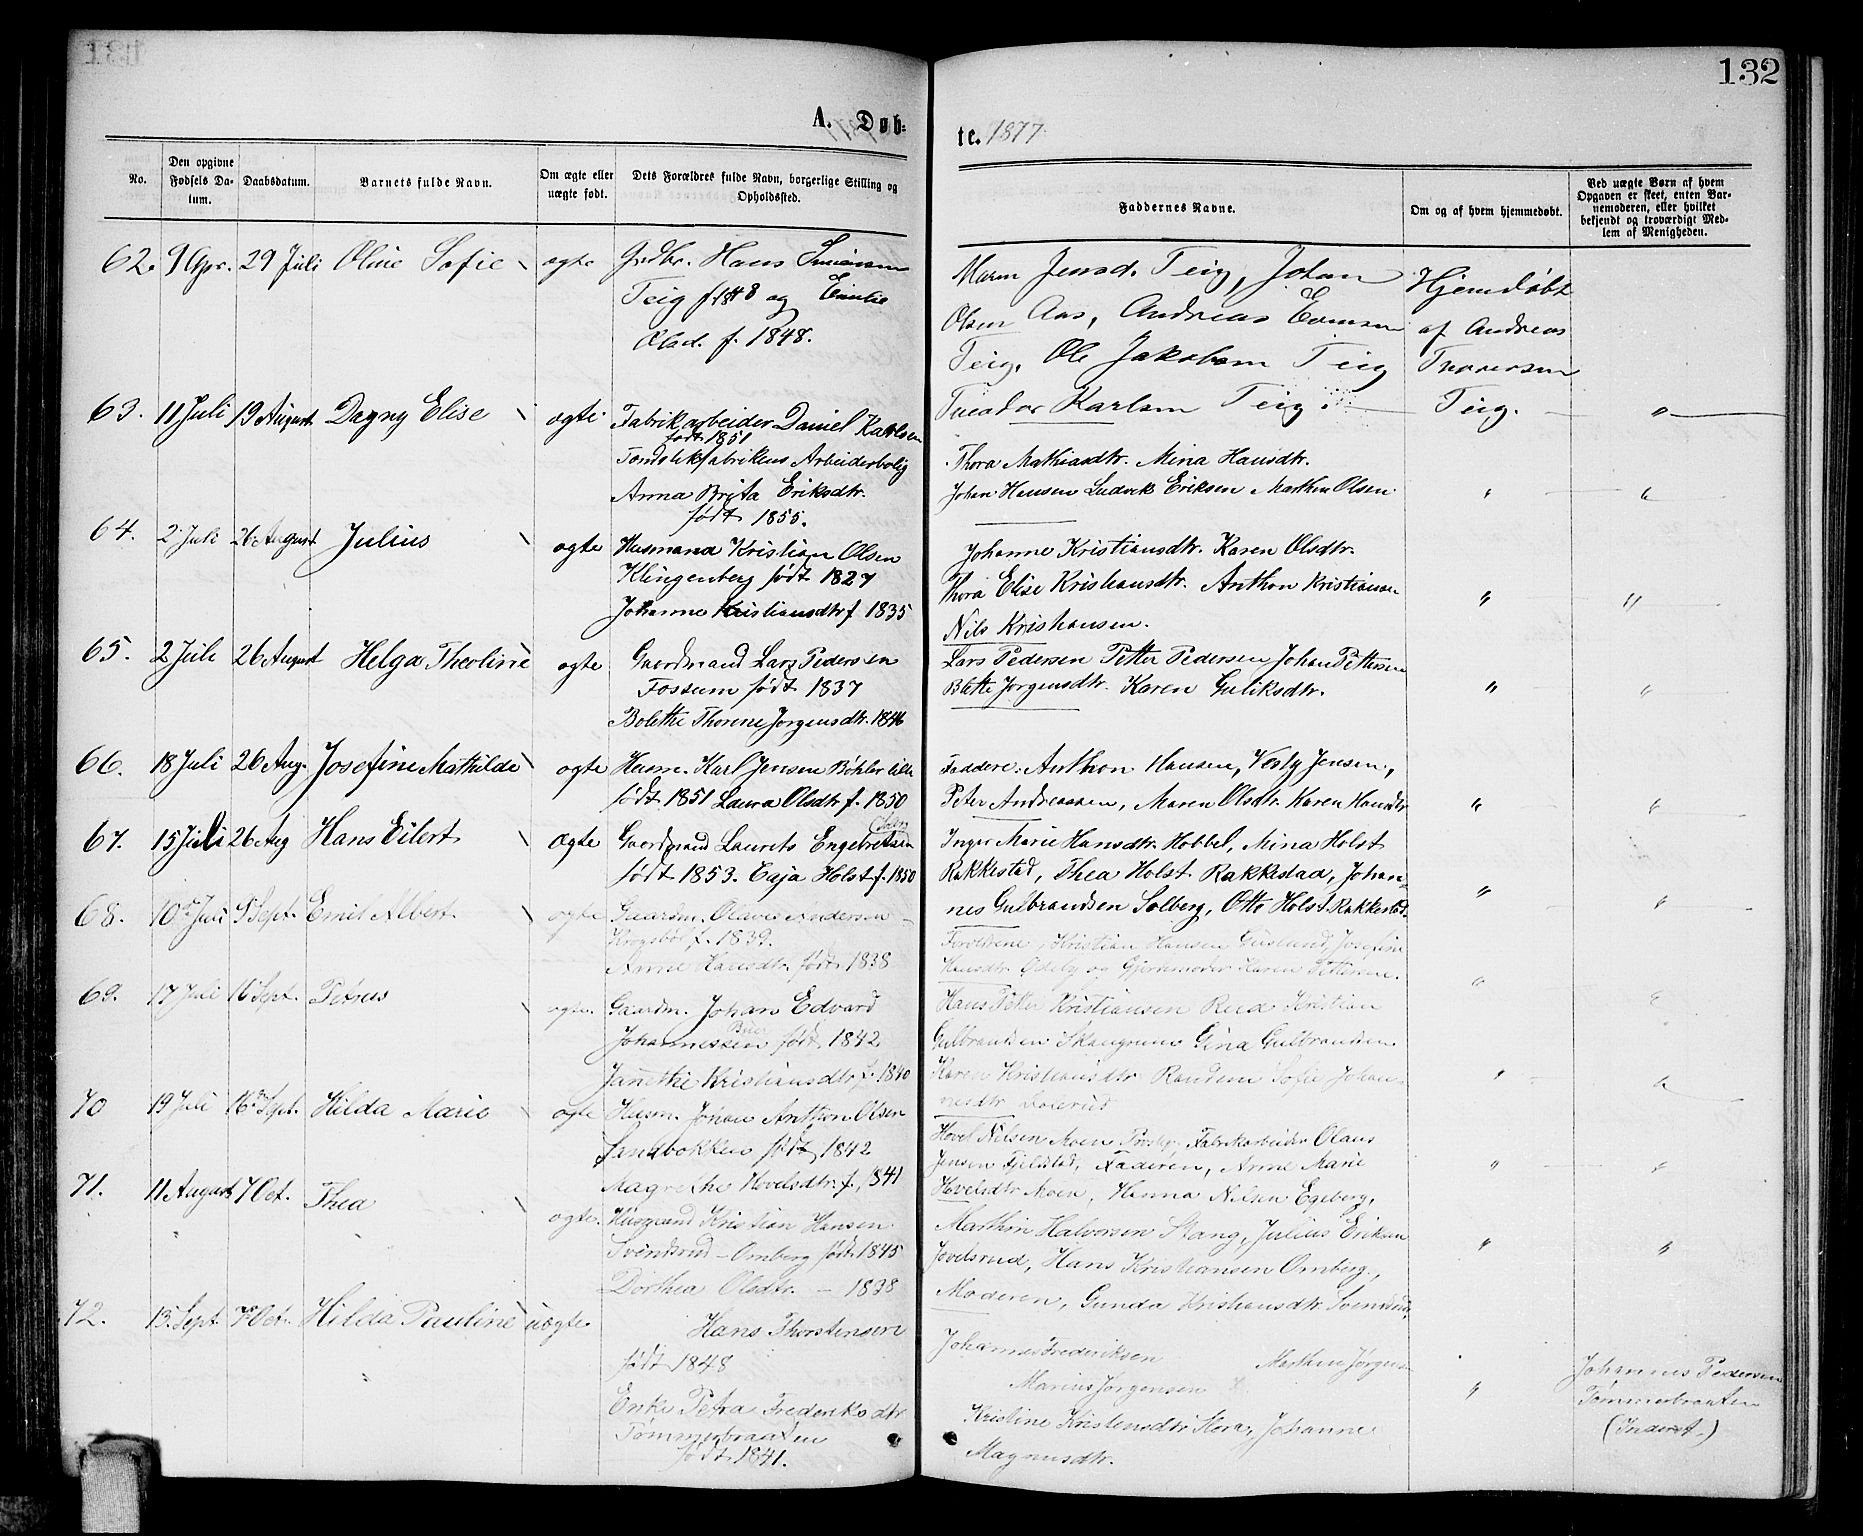 132
A. Døb-
te. 1877
No.
Den opgivne Fødsels Da-tum.
Daabsdatum.
Barnets fulde Navn.
Om ægte eller uægte født.
Dets Forældres fulde Navn, borgerlige Stilling og Opholdssted.
Faddernes Navne.
Om og af hvem hjemmedøbt.
Ved uægte Børn af hvem Opgaven er skeet, enten Bar-nemoderen, eller hvilket bekjendt og troværdigt Med-lem af Menigheden.
62. 9 Apr. 29 Juli Oline Sofie ægte
Hans
Teig og Emilie
f. 1848.
Maren Jensd. Teig, Johan
Olsen Aas, Andreas
Teig, Ole Jakobsen Teig
Karlsen Teig.
Hjemdøbt
af Andreas
Teig.
63. 11 Juli 19 August Dagny Elise ægte
Fabrikarbeider Daniel Karlsen
født 1851
Fabrikens Arbeiderbolig
Anna Brita Eriksdtr.
født 1855.
Thora Mathiasdtr. Mina Hansdtr.
Johan Hansen Ludvik Eriksen Marthin Olsen
64. 2 Juli 26 August Julius ægte
Husmand Kristian Olsen
Klingenberg født 1827
Johanne Kristiansdtr f. 1835
Johanne Kristiansdtr. Karen Olsdtr.
Thora Elise Kristiansdtr. Anthon Kristiansen
Nils Kristiansen.
65. 2 Juli 26 August Helga Theoline ægte
Gaardmand Lars Pedersen
Fossum født 1837
Bolette Thorine Jørgensdtr. 1846
Lars Pedersen Petter Pedersen Johan Pettersen
Jørgensdtr. Karen Guliksdtr.
66. 18 Juli 26 Aug. Josefine Mathilde ægte
Husm. Karl Jensen Bøhler lille
født 1851 Laura Olsdtr f. 1850
Faddere: Anthon Hansen, Jensen,
Peter Andreassen, Maren Olsdtr. Karen Hansdtr
67. 15 Juli 26 Aug Hans Eilert Ægte
Gaardmand Laurits Engebretsen
født 1853. Caja Holst f. 1850
Inger Marie Hansdtr. Hobbel, Mina Holst
Rakkestad, Thea Holst Rakkestad, Johan-
nes Gulbrandsen Solberg, Otto Holst Rakkestad.
68. 10de Juli 9 Sept. Emil Albert ægte
Gaardm. Olaves Andersen
Krogsbøl f. 1839.
Anne Hansdtr. født 1838
Kristian Hansen Josefine
Hansdtr Ødeby og Gjordemoder Karen Pettersen.
69. 17 Juli 16 Sept. Petrus ægte.
Gaardm. Johan Edvard
Johannessen født 1842
Janethe Kristiansdtr f. 1840
Hans Petter Kristiansen Rud Kristian
Gulbrandsen Skangrum Gina Gulbrandsen
Karen Kristiansdtr Randem Sofie Johan-
nesdtr
70 19 Juli 16de Sept. Hilda Marie ægte
Husm. Johan Anthon Olsen
Sandbakken født 1842
Magrethe Hovelsdtr. f. 1841
Hovel Nilsen Moen Fabrikarbeider Olaus
Jensen Fjeldstad, Faderen, Anne Marie
Hovelsdtr Moen, Hanna Nilsen Egeberg,
71. 11 August 7 Oct. Thea ægte.
Husmand Kristian Hansen
Svendsrud - Omberg født 1845
Dorthea Olsdtr. - 1838
Marthin Halvorsen Stang, Julius Eriksen
Hans Kristiansen Omberg.,
Moderen, Gunda Kristiansdtr Svendsrud,
72. 13 Sept. 7de Oct. Hilda Pauline uægte
Hans Thorstensen
født 1848
Enke Petra Frederiksdtr
Tømmerbraaten
født 1841.
Johannes Frederiksen Marthin Jørgens
Marius Jørgensen
Kristine Kristensdtr Johanne
Magnusdtr.
Johannes Pedersen
Tømmerbraaten
(Inderst.)